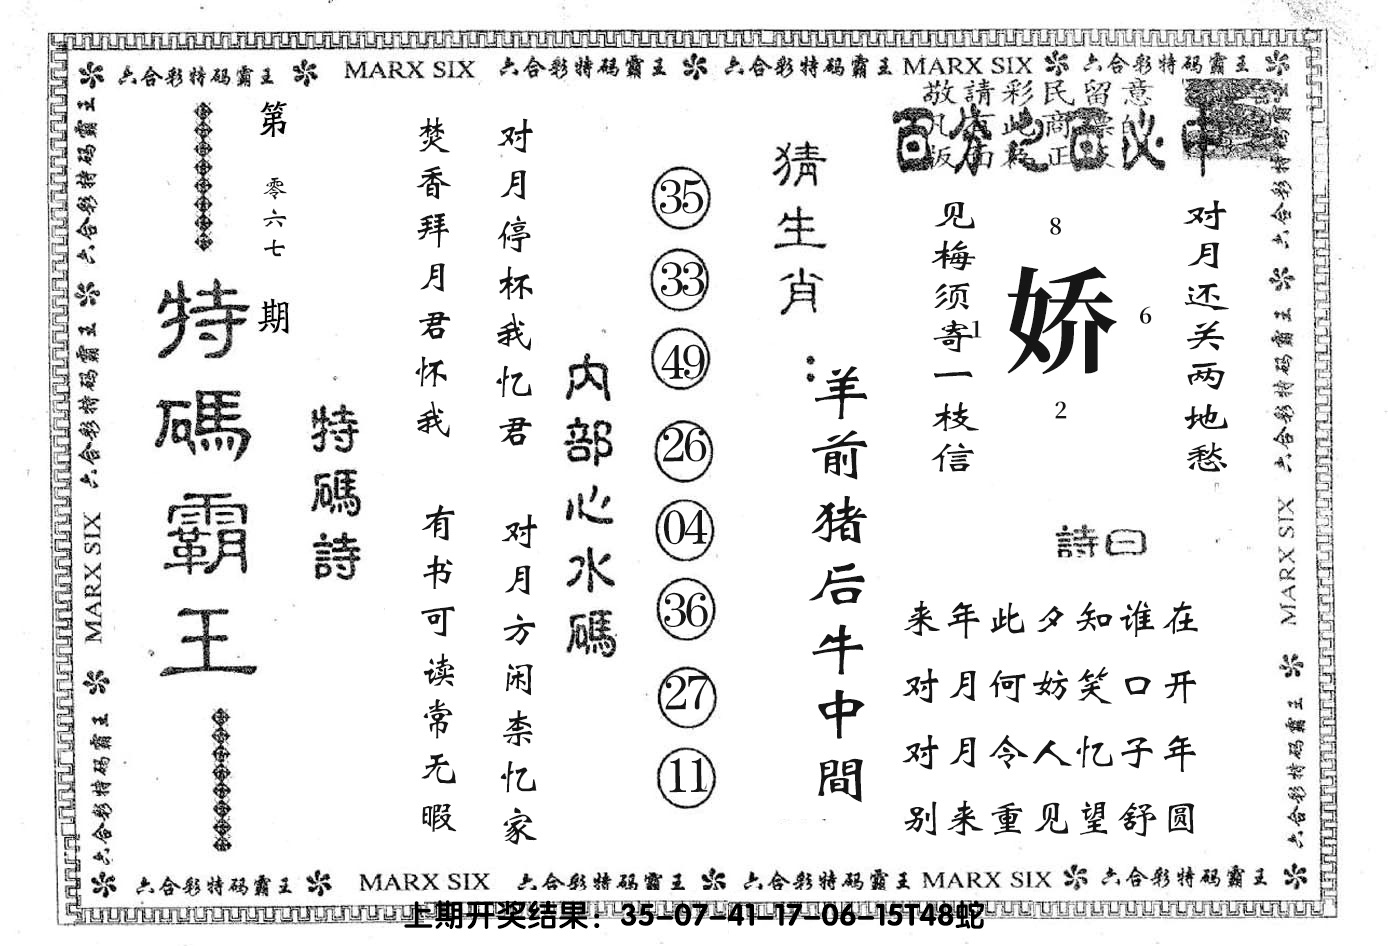 六合彩特码霸王 MARX SIX 六合彩特码霸王 六合彩特码霸王 MARX SIX 六合彩特码霸王
敬請彩民留意
百分之百必中
对月还关两地愁
娇
8
1
6
2
见梅须寄一枝信
詩曰
来年此夕知谁在
对月何妨笑口开
对月令人忆子年
别来重见望舒圆
猜生肖：
羊前猪后牛中間
35
33
49
26
04
36
27
11
内部心水碼
对月停杯我忆君
对月方闲柰忆家
焚香拜月君怀我
有书可读常无暇
特碼詩
第零六七期
特碼霸王
六合彩特码霸王 六合彩特码霸王 MARX SIX 六合彩特码霸王
六合彩特码霸王 六合彩特码霸王 MARX SIX 六合彩特码霸王
六合彩特码霸王 MARX SIX 六合彩特码霸王 六合彩特码霸王 MARX SIX 六合彩特码霸王
上期开奖结果：35-07-41-17-06-15T48蛇